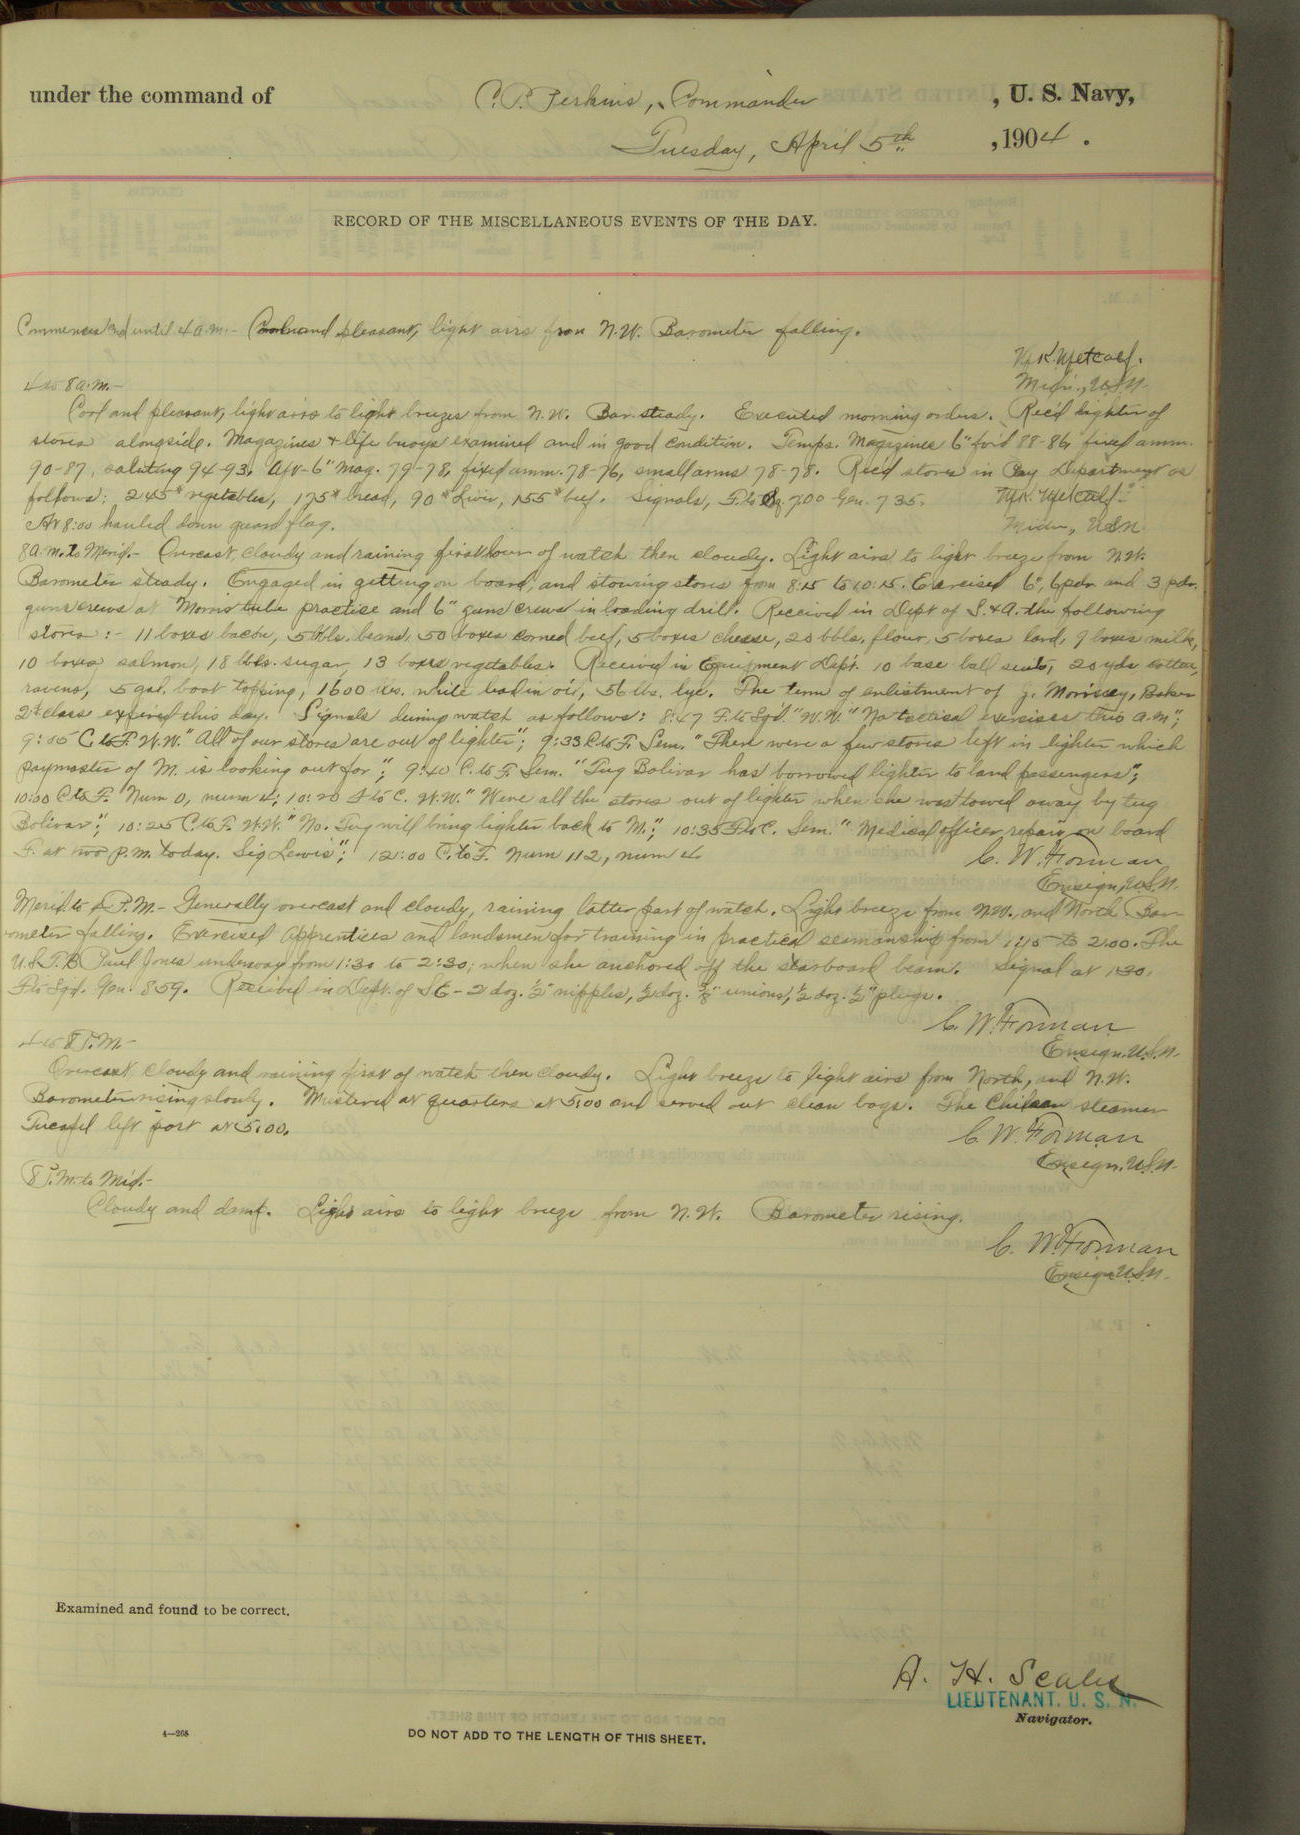 under the command of C. P. Perkins, Commander, U. S. Navy,
Tuesday, April 5th, 1904.
RECORD OF THE MISCELLANEOUS EVENTS OF THE DAY.
Commences and until 4 a.m.- Cool and pleasant, light airs from N.W. Barometer falling.
M.K. Metcalf.
Midn., U.S.N.
4 to 8 a.m.-
Cool and pleasant, light airs to light breezes from N.W. Bar. steady. Executed morning orders. Rec'd lighter of
stores alongside. Magazines & life buoys examined and in good condition. Temps. Magazines 6" for'd 88-86, fixed amm.
90-87, saluting 94-93. Aft-6" mag. 79-78, fixed amm. 78-76, small arms 78-78. Rec'd stores in Pay Department as
follows: 245# vegetables, 175# bread, 90# liver, 155# beef. Signals, F. to 7.00 Gen. 735.
M.K. Metcalf
At 8:00 hauled down guard flag.
Midn., U.S.N.
8 a.m. to Merid.- Overcast, cloudy and raining first hour of watch then cloudy. Light airs to light breeze from N.W.
Barometer steady. Engaged in getting on board, and stowing stores from 8:15 to 10:15. Exercised 6", 6 pdr. and 3 pdr.
guns crews at Morris tube practice and 6" guns crews in loading drill. Received in Dept of S. & A. the following
stores:- 11 boxes bacon, 5 bbls. beans, 50 boxes corned beef, 5 boxes cheese, 20 bbls. flour, 5 boxes lard, 9 boxes milk,
10 boxes salmon, 18 bbls. sugar, 13 boxes vegetables. Received in Equipment Dept. 10 base ball seats, 20 yds cotton,
ravens, 5 gal. boot topping, 1600 lbs. white lead in oil, 56 lbs. lye. The term of enlistment of J. Morrisey, Baker
2d class expired this day. Signals during watch as follows: 8:47 F. to Sqd. "W.W." No tactical exercises this a.m.";
9:05 C. to F. W.W. "All of our stores are out of lighter"; 9:33 C. to F. Sem. "There were a few stores left in lighter which
paymaster of M. is looking out for"; 9:40 C. to F. Sem. "Tug Bolivar has borrowed lighter to land passengers";
10:00 C to F. Num 0, num 4; 10:20 F to C. W.W. "Were all the stores out of lighter when she was towed away by tug
Bolivar"; 10:25 C. to F. W.W. "No. Tug will bring lighter back to M."; 10:35 F to C. Sem. "Medical officer repair on board
F. at two p.m. today. Sig Lewis"; 12:00 C. to F. Num 112, num 4
C. W. Forman
Ensign, U.S.N.
Merid. to 4 P.M.- Generally overcast and cloudy, raining latter part of watch. Light breeze from N.W. and North. Bar-
ometer falling. Exercised apprentices and landsmen for training in practical seamanship from 1:15 to 2:00. The
U.S.T.B. Paul Jones underway from 1:30 to 2:30; when she anchored off the starboard beam. Signal at 1:30.
F to Sqd. Gen. 859. Received in Dept. of S E - 2 doz. ½" nipples, ½ doz. ⅜" unions, ½ doz. ½" plugs.
C. W. Forman
Ensign, U.S.N.
4 to 8 P.M.-
Overcast cloudy and raining first of watch then cloudy. Light breeze to light airs from North, and N.W.
Barometer rising slowly. Mustered at quarters at 5:00 and served out clean bags. The Chilean steamer
Tucapel left port at 5:00.
C. W. Forman
Ensign, U.S.N.
8 P.M. to Mid.-
Cloudy and damp. Light airs to light breeze from N.W. Barometer rising.
C. W. Forman
Ensign U.S.N.
Examined and found to be correct.
A. H. Scales
LIEUTENANT. U. S. N.
Navigator.
4—268
DO NOT ADD TO THE LENGTH OF THIS SHEET.